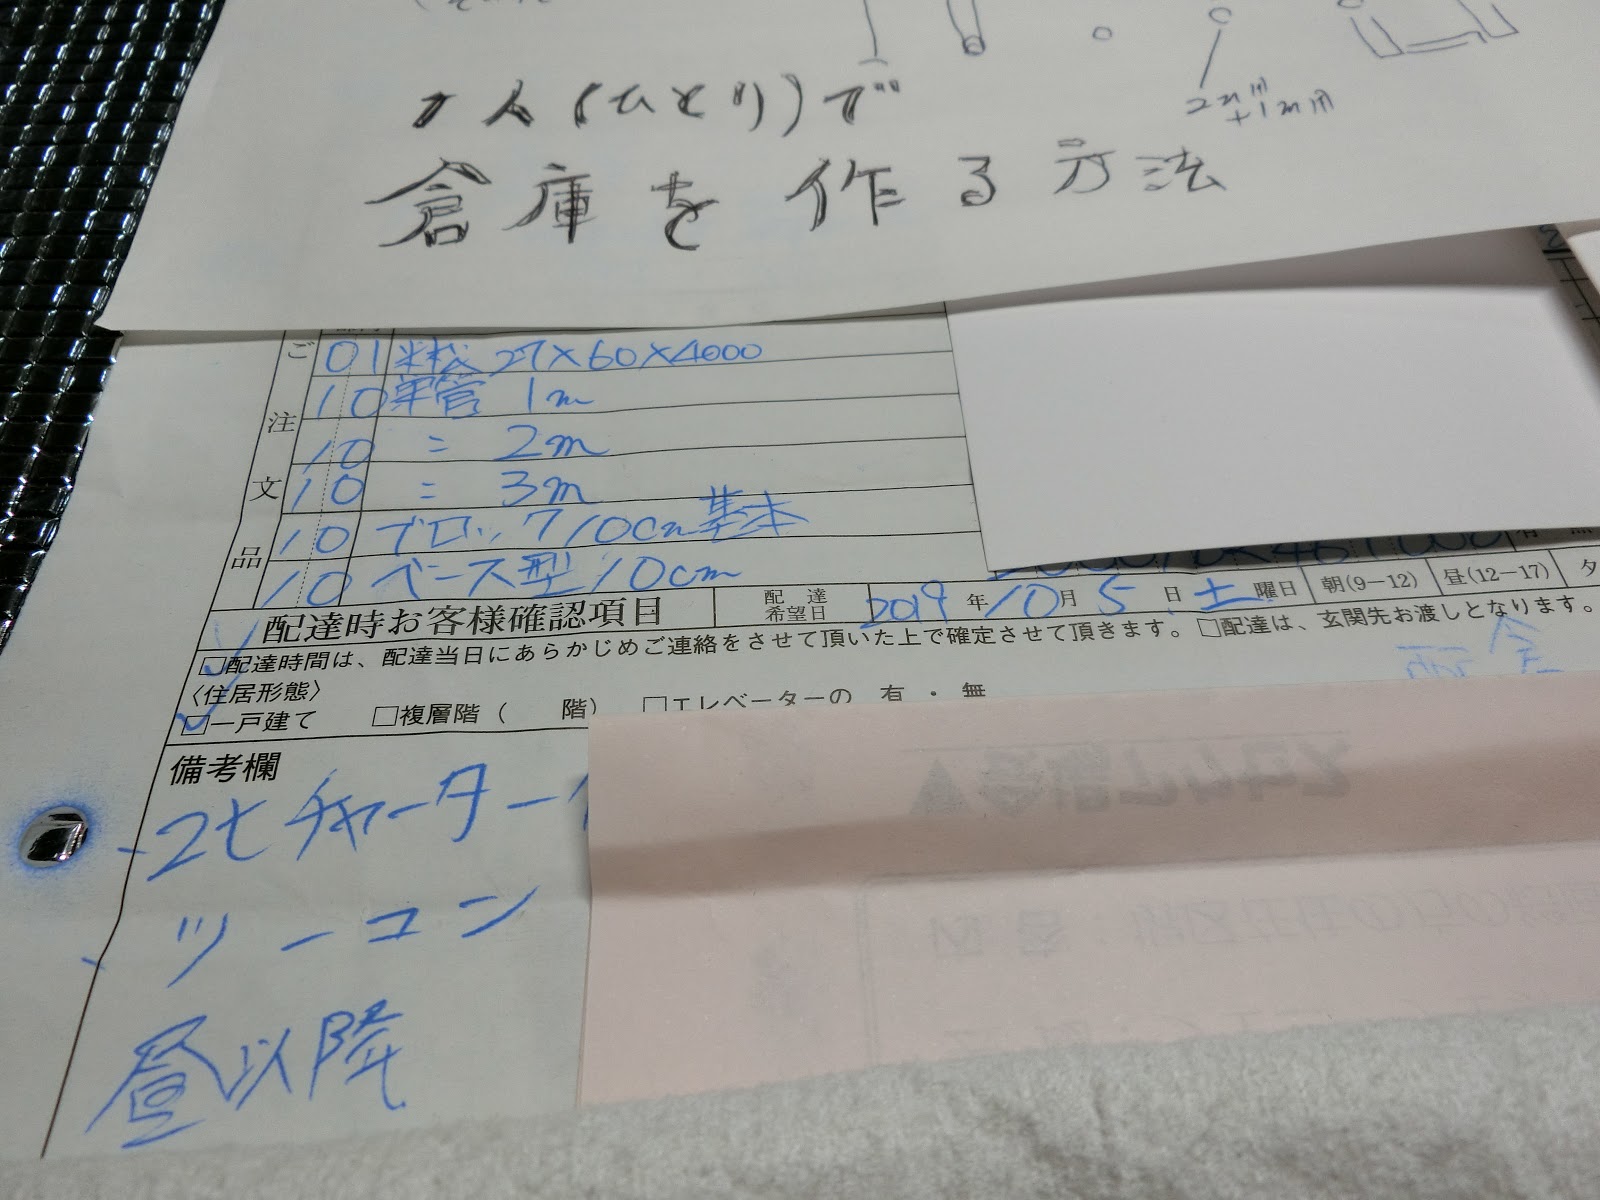 2m
+1m
1人(ひとり)で
倉庫を作る方法
ご注文品
01 米松 27×60×4000
10 単管 1m
10 〃 2m
10 〃 3m
10 ブロック10cm基本
10 ベース型10cm
配達時お客様確認項目 配達希望日 2019年10月5日土曜日 朝(9-12) 昼(12-17)
□配達時間は、配達当日にあらかじめご連絡をさせて頂いた上で確定させて頂きます。□配達は、玄関先お渡しとなります。
〈住居形態〉
□一戸建て □複層階( 階) □エレベーターの 有・無
備考欄
2tチャーター
ツーコン
昼以降